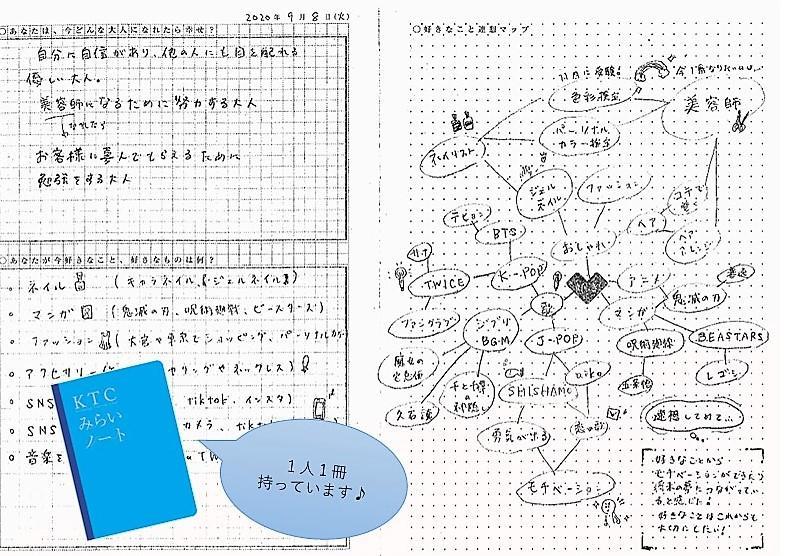 2020年9月8日(火)
○あなたは、今どんな大人になれたら幸せ?
自分に自信があり、他の人にも目を配れる
優しい大人。
美容師になるために努力する大人
なれたら
お客様に喜んでもらえるために
勉強をする大人
○あなたが今好きなこと、好きなものは何?
ネイル (キャラネイル、ジェルネイル)
マンガ (鬼滅の刃、呪術廻戦、ビースターズ)
ファッション (大宮や東京でショッピング、パーソナルカラー
アクセサリー ネックレス)
SNS tiktok、インスタ)
SNS カメラ、
音楽
KTC
みらい
ノート
1人1冊
持っています♪
○好きなこと連想マップ
11月に受験!
色彩検定
美容師
パーソナル
カラー検定
ネイリスト
ジェル
ネイル
ファッション
コテで
巻く
ヘア
ヘア
アレンジ
おしゃれ
デビュー
BTS
K-POP
TWICE
ファンクラブ
歌
アニメ
マンガ
鬼滅の刃
呪術廻戦
BEASTARS
レゴシ
ジブリ
BGM
J-POP
魔女の
宅急便
千と千尋
の神隠し
久石譲
SHISHAMO
aiko
恋の歌
勇気が出る
モチベーション
連想してみて…
好きなことから
モチベーションができたり
将来の夢につながってい
ると感じた!
好きなことはこれからも
大切にしたい!